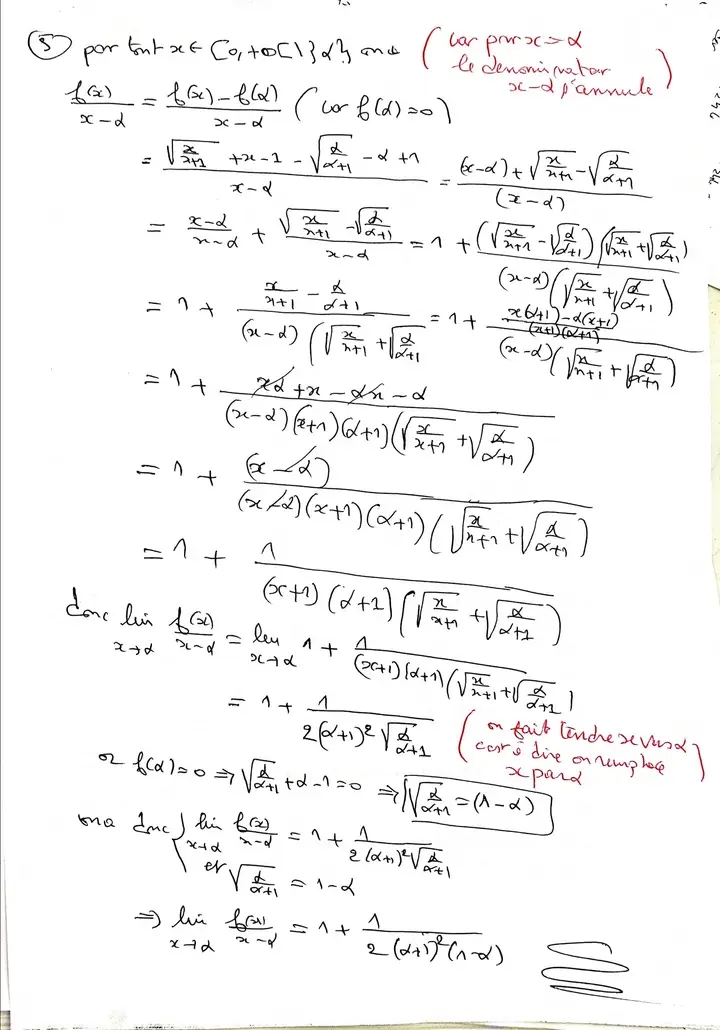 ⑤ pour tout x ∈ [0,+∞[ \ {α} on a (car pour x = α
le denominateur
x-α s'annule)
f(x)/(x-α) = (f(x) - f(α))/(x-α) (car f(α)=0)
= (√(x/(x+1)) + x - 1 - √(α/(α+1)) - α + 1)/(x-α) = ((x-α) + √(x/(x+1)) - √(α/(α+1)))/(x-α)
= (x-α)/(x-α) + (√(x/(x+1)) - √(α/(α+1)))/(x-α) = 1 + ((√(x/(x+1)) - √(α/(α+1)))(√(x/(x+1)) + √(α/(α+1))))/((x-α)(√(x/(x+1)) + √(α/(α+1))))
= 1 + (x/(x+1) - α/(α+1))/((x-α)(√(x/(x+1)) + √(α/(α+1)))) = 1 + ((x(α+1) - α(x+1))/((x+1)(α+1)))/((x-α)(√(x/(x+1)) + √(α/(α+1))))
= 1 + (xα + x - αx - α)/((x-α)(x+1)(α+1)(√(x/(x+1)) + √(α/(α+1))))
= 1 + (x-α)/((x-α)(x+1)(α+1)(√(x/(x+1)) + √(α/(α+1))))
= 1 + 1/((x+1)(α+1)(√(x/(x+1)) + √(α/(α+1))))
donc lim x→α f(x)/(x-α) = lim x→α 1 + 1/((x+1)(α+1)(√(x/(x+1)) + √(α/(α+1))))
= 1 + 1/(2(α+1)² √(α/(α+1))) (on fait tendre x vers α
c'est à dire on remplace
x par α)
or f(α)=0 ⇒ √(α/(α+1)) + α - 1 = 0 ⇒ √(α/(α+1)) = (1-α)
on a donc { lim x→α f(x)/(x-α) = 1 + 1/(2(α+1)² √(α/(α+1)))
et √(α/(α+1)) = 1-α
⇒ lim x→α f(x)/(x-α) = 1 + 1/(2(α+1)²(1-α))